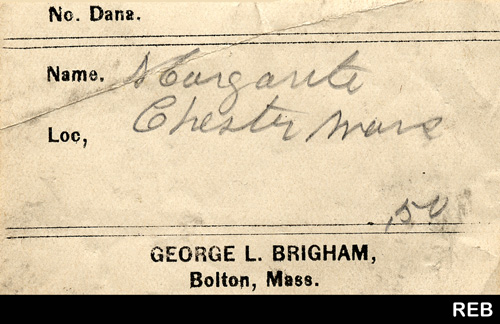 No. Dana.
Name. Margarite
Loc, Chester Mass
.50
GEORGE L. BRIGHAM,
Bolton, Mass.
REB